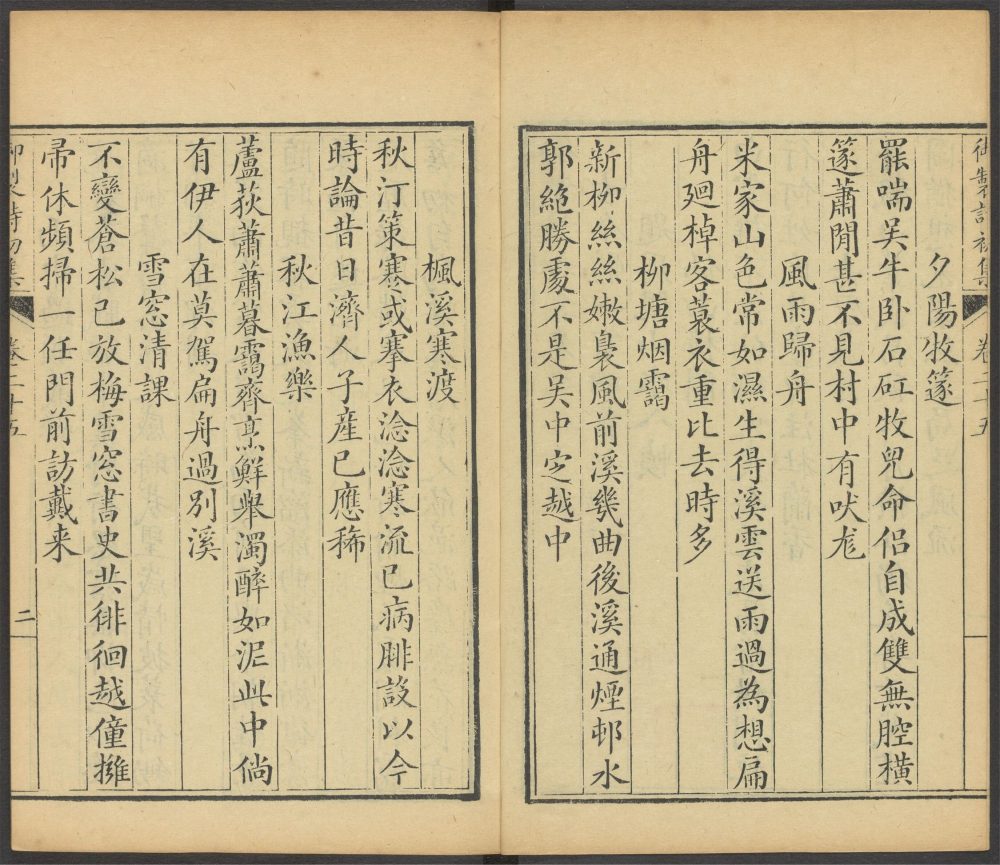 御製詩初集
卷二十五
夕陽牧篴
罷喘吴牛卧石矼牧兒命侣自成雙無腔横
篴蕭閒甚不見村中有吠尨
風雨歸舟
米家山色常如濕生得溪雲送雨過為想扁
舟廻棹客蓑衣重比去時多
柳塘烟靄
新柳絲絲嫩裊風前溪幾曲後溪通煙邨水
郭絶勝處不是吴中定越中
楓溪寒渡
秋汀策蹇或搴衣淰淰寒流已病腓設以今
時論昔日濟人子産已應稀
秋江漁樂
蘆荻蕭蕭暮靄齊烹鮮舉濁醉如泥此中倘
有伊人在莫駕扁舟過別溪
雪窓清課
不變蒼松已放梅雪窓書史共徘徊越僮擁
帚休頻掃一任門前訪戴来
御製詩初集
卷二十五
二